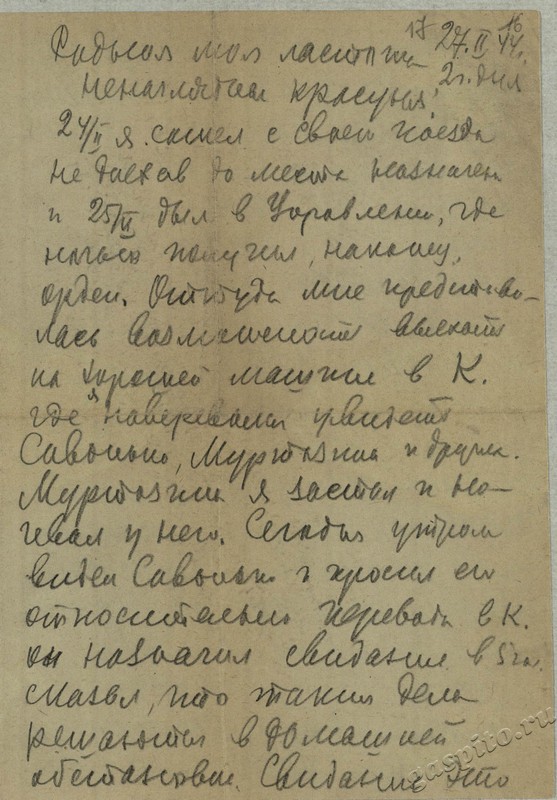 17 16
27.II 44г.
2 ч. дня
Родная моя ласточка
ненаглядная красуня!
24/II я сошел с своего поезда
не доехав до места назначен
и 25/II был в Управлении, где
получил, наконец,
орден. Оттуда мне представи-
лась возможность выехать
на хорошей машине в К.
где я намеревался увидеть
Савонько, Муртазина и других.
Муртазина я застал и но-
чевал у него. Сегодня утром
видел Савонько и просил его
относительно перевода в К.
он назначил свидание в 5 час.
сказал, что такие дела
решаются в домашней
обстановке. Свидание это
gaspito.ru